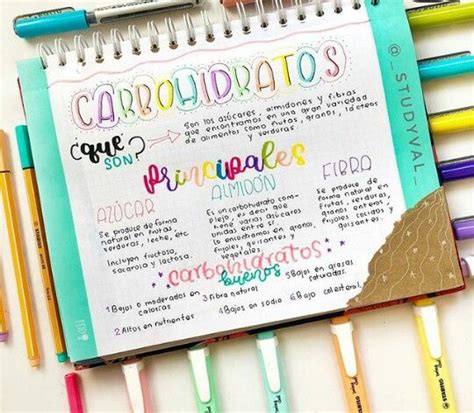 CARBOHIDRATOS
¿que SON?
Son los azúcares, almidones y fibras
que encontramos en una gran variedad
de alimentos como frutas, granos, lácteos
y verduras.
principales
AZÚCAR
Se produce de forma
natural en frutas
verduras, leche, etc.
Incluyen fructosa,
sacarosa y lactosa.
ALMIDÓN
Es un carbohidrato com-
plejo, es decir que
tiene varios azúcares
unidas entre sí
Lo encontramos en grano,
frijoles, guisantes y
vegetales.
FIBRA
Se produce de
forma natural en
frutas, verduras,
granos enteros,
frijoles cocidos y
guisantes.
carbohidratos
buenos
1 Bajos o moderados en
calorías
2 Altos en nutrientes
3 Fibra natural
4 Bajos en sodio
5 Bajos en grasas
saturadas.
6 Bajo colesterol.
@_STUDYVAL_
STABILO